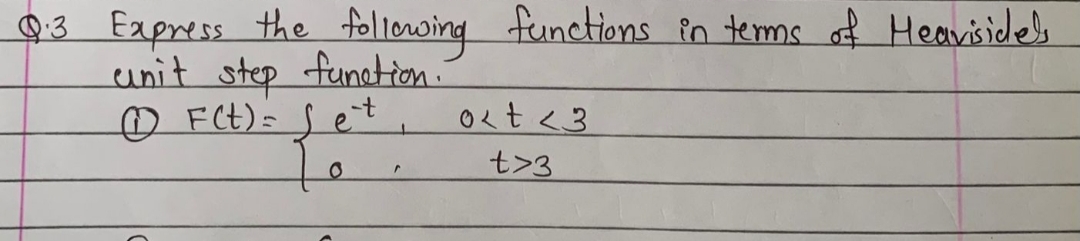 Q.3 Express the following functions in terms of Heaviside's
unit step function.
① F(t) = { e^-t , 0<t<3
0 , t>3